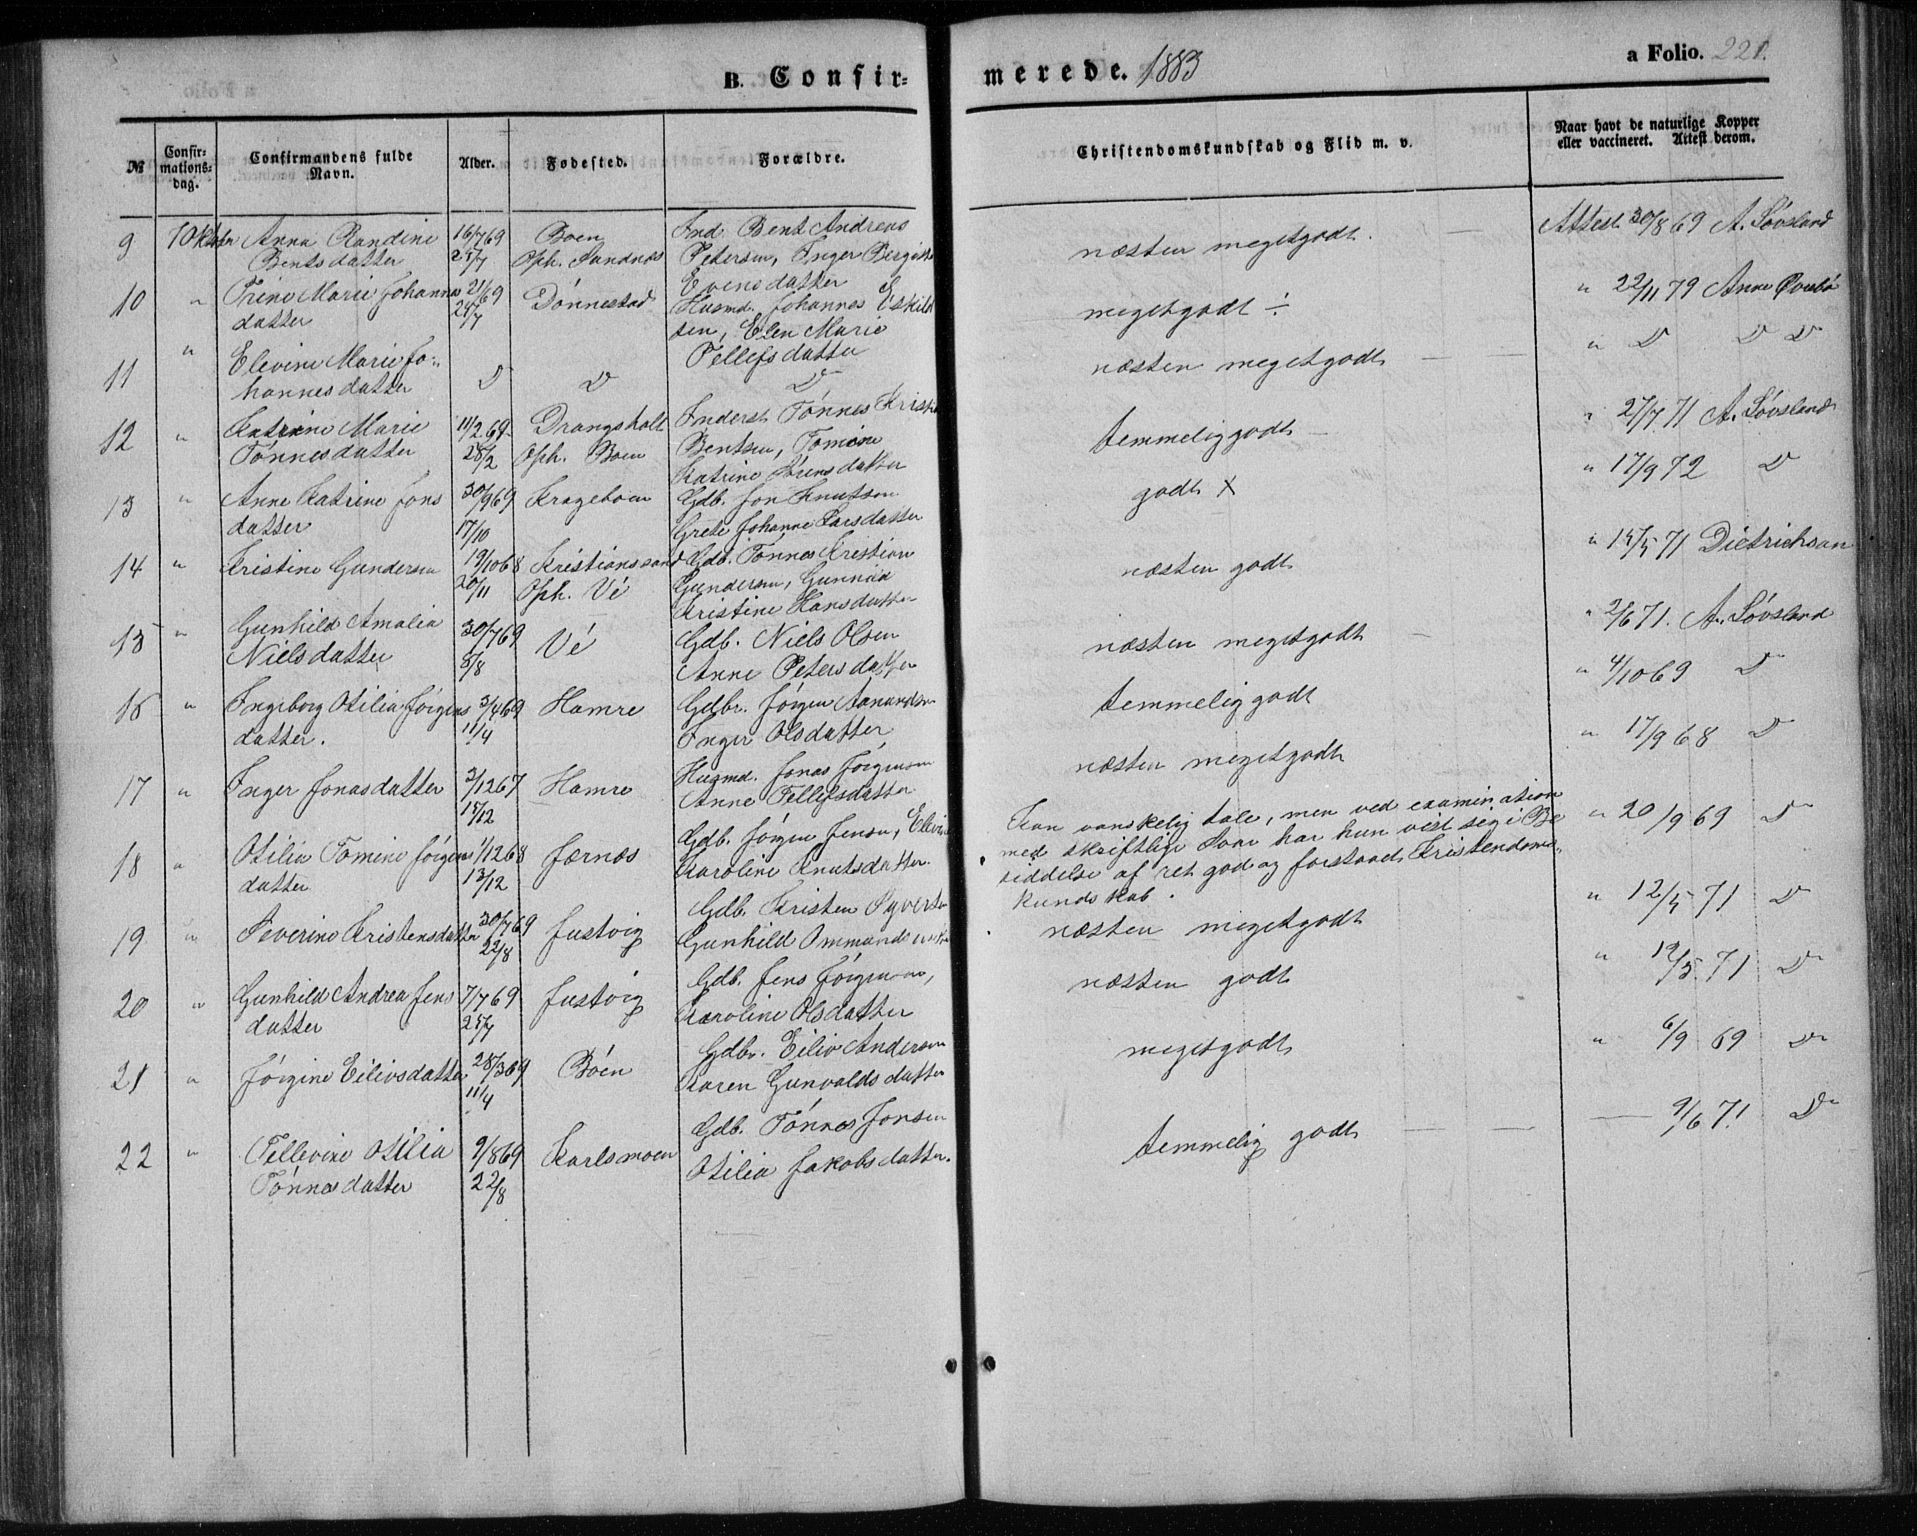 B. Confir-
merede. 1883
a Folio. 221.
№
Confir-
mations-
dag.
Confirmandens fulde
Navn.
Alder.
Fødested.
Forældre.
Christendomskundskab og Flid m. v.
Naar havt de naturlige Kopper
eller vaccineret. Attest derom.
9 Anna Randine 16/7 69 Boen Ind. Bent Andreas næsten megetgodt. Attest 30/8 69 A. Løvsland
Bentsdatter 25/7 Oph. Sandnæs Petersen, Inger Bergitte
Evensdatter
10 " Trine Marie Johannes 21/6 69 Dønnestad Husmd. Johannes Eskild megetgodt ÷ " 22/11 79 Anne Øvrebø
datter 25/7 sen, Elen Marie
Tellefsdatter
11 " Elevine Marie Jo- D D D næsten megetgodt " D D D
hannesdatter
12 " Katrine Marie 11/2 69 Drangsholt Inderst Tønnes Kristi temmelig godt " 27/7 71 A. Løvsland
Tønnesdatter 28/2 Oph. Boen Bentsen, Tomine
Katrine
13 " Anne Katrine Jons 30/9 69 Krageboen Gdb. Jon Knutsen godt X " 17/9 72 D
datter 17/10 Grete Johanne Larsdatter
14 " Kristine Gundersen 19/10 68 Kristianssand Gdb. Tønnes Krestian næsten godt " 15/5 71 Dietrichson
20/11 Oph. Vé Gundersen, Gunnild
Kristine Hansdatter
15 " Gunhild Amalia 30/7 69 Vé Gdb. Niels Olsen næsten megetgodt " 2/6 71. A. Løvsland
Nielsdatter 8/8 Anne Petersdatter
16 " Ingeborg Otilia Jørgens 3/4 69 Hamre Gdbr. Jørgen Aanundsen temmelig godt " 4/10 69 D
datter. 11/4 Inger Olsdatter
17 " Inger Jonasdatter 2/12 67 Hamre Husmd. Jonas Jørgensen næsten megetgodt " 17/9 68 D
15/12 Anne Tellefsdatter
18 " Otilia Tomine Jørgens 1/12 68 Færnæs Gdb. Jørgen Jensen, Elevine Kan vanskelig tale, men ved examination " 20/9 69 D
datter 13/12 Karoline Knutsdatter. med skriftlige Svar har hun vist sig i Be
siddelse af ret god og forstaaet Kristendoms-
kundskab.
19 " Severine Kristensdatter 30/7 69 Justvig Gdb. Kristen Syverts næsten megetgodt " 12/5 71 D
22/8 Gunhild Ommundsdatter
20 " Gunhild Andrea Jens 7/7 69 Justvig Gdb. Jens Jørgensen, næsten godt " 12/5 71 D
datter 25/7 Karoline Olsdatter
21 " Jørgine Eilivsdatter 28/3 69 Bøen Gdbr. Eiliv Andersen megetgodt " 6/9 69 D
11/4 Karen Gunvaldsdatter
22 " Tellevine Otilia 9/8 69 Karlsmoen Gdb. Tønnes Jonsen temmelig godt 9/6 71 D
Tønnesdatter 22/8 Otilia Jakobsdatter.